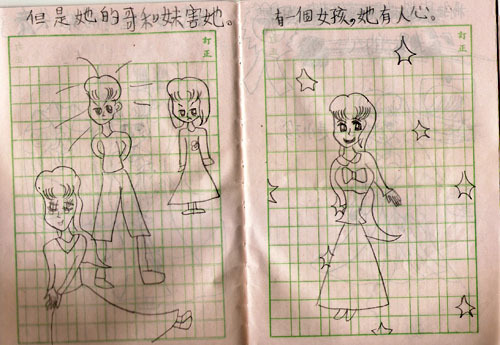 有一個女孩，她有人心。
訂正
但是她的哥和妹害她。
訂正